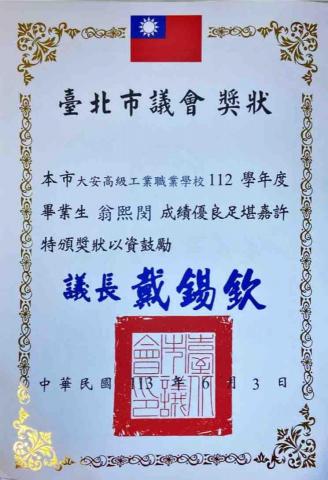 臺北市議會 獎狀
本市大安高級工業職業學校112 學年度
畢業生 翁熙閔 成績優良足堪嘉許
特頒獎狀以資鼓勵
議長 戴錫欽
臺北市議會印
中華民國 113 年 6 月 3 日